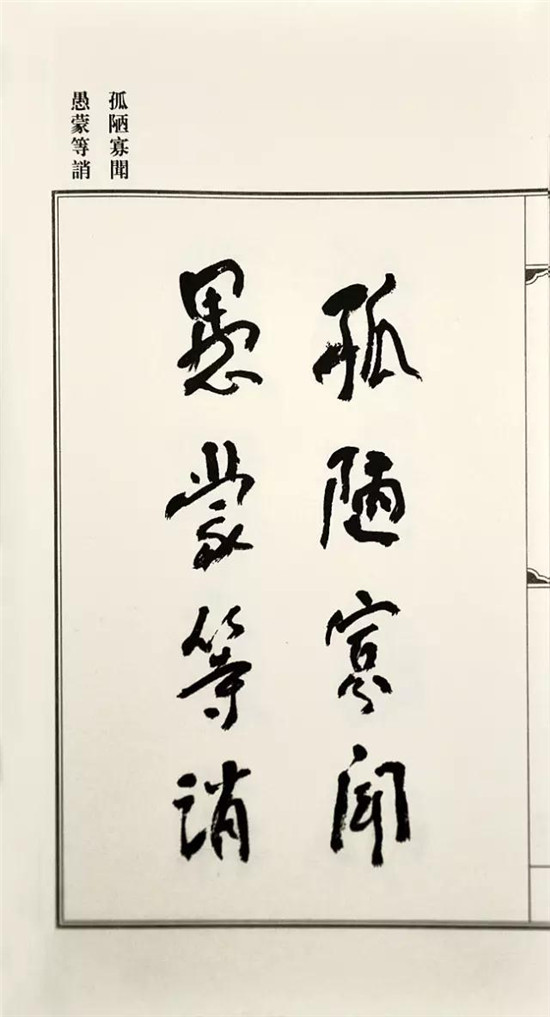 孤陋寡聞
愚蒙等誚
孤陋寡聞
愚蒙等誚